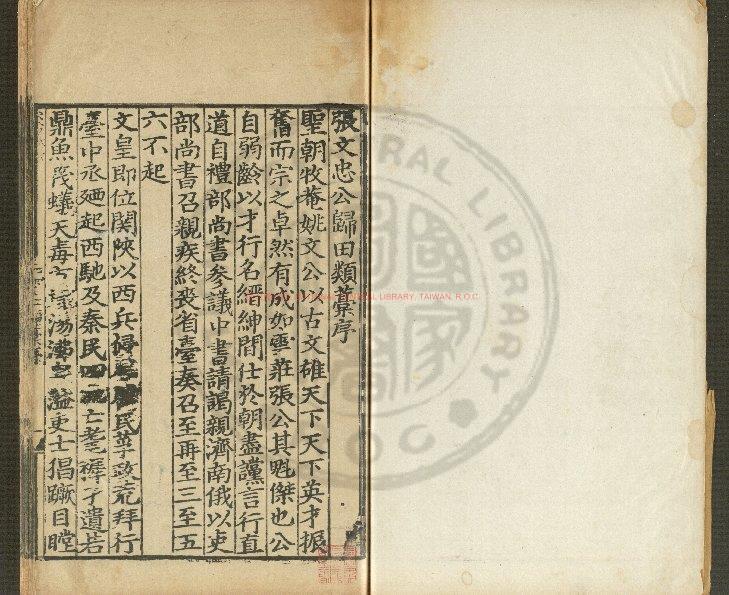 張文忠公歸田類藁序
聖朝牧菴姚文公以古文雄天下天下英才振
奮而宗之卓然有成如雲莊張公其魁傑也公
自弱齡以才行名縉紳閒仕於朝盡讜言行直
道自禮部尚書參議中書請謁親濟南俄以吏
部尚書召親疾終喪省臺奏召至再至三至五
六不起
文皇即位関陝以西兵 民莩政荒拜行
臺中丞廼起西馳及秦民 亡耄稺孑遺若
鼎魚茂蟻天毒 湯沸 溢吏士倡蹶目瞠
NATIONAL CENTRAL LIBRARY, TAIWAN, R.O.C.
國家
CENTRAL LIBRARY
ROC